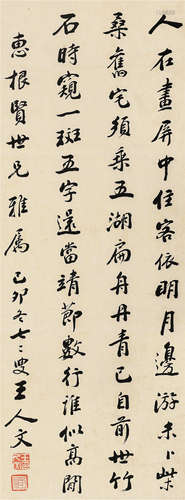 人在畫屏中住客依明月邊游未卜柴
桑舊宅須乘五湖扁舟丹青已自前世竹
石時窺一斑五字還當靖節數行誰似高閒
惠根賢世兄雅屬 己卯冬七二叟王人文